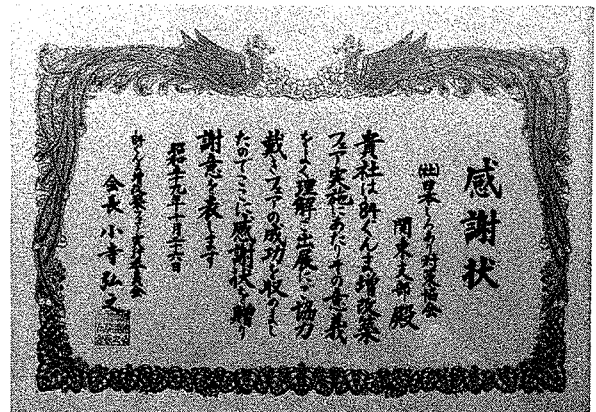 感謝状
(社)日本しろあり対策協会
関東支部殿
貴社は群ぐんま増改築
フェア実施にあたりその意義
をよく理解し出展にご協力
戴きフェアの成功を収めまし
たのでここに感謝状を贈り
謝意を表します
昭和五十九年十月二十六日
ぐんま増改築フェア実行委員会
会長 小寺弘之